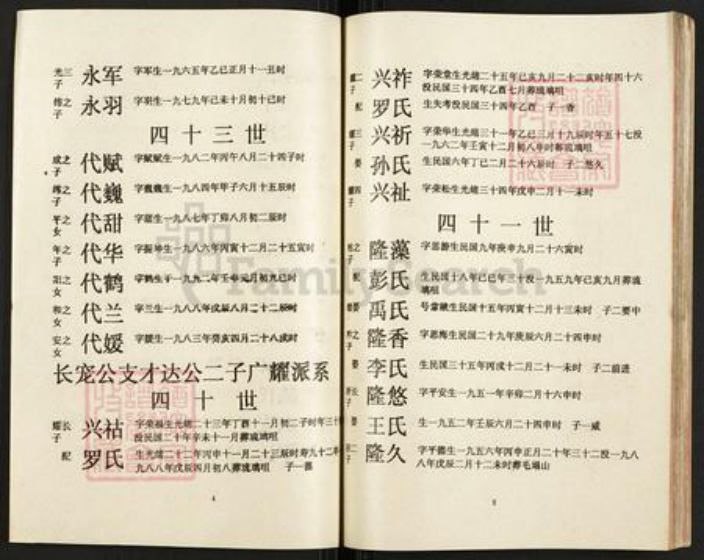 三子 永军 字军生一九六五年乙巳正月十一丑时
之子 永羽 字羽生一九七九年己未十月初十巳时
四十三世
之子 代赋 字赋赋生一九八二年丙午八月二十四子时
之子 代巍 字巍巍生一九八四年甲子六月十五辰时
之女 代甜 字甜生一九八七年丁卯八月初二辰时
之子 代华 字振坤生一九八六年丙寅十二月二十五寅时
之女 代鹤 字鹤生于一九九二年壬申元月初九巳时
之女 代兰 字兰生一九八八年戊辰八月二十二辰时
之女 代媛 字媛生一九八三年癸亥四月二十八戌时
长宠公支才达公二子广耀派系
四十世
长子 兴祜 字荣福生光绪二十三年丁酉十一月初二子时年三十
没民国二十年辛未十一月葬琉璃咀
配 罗氏 生光绪二十二年丙申十一月二十三辰时寿九十二
九八八年戊辰四月初八葬琉璃咀 子一
4
二子 兴祚 字荣堂生光绪二十五年己亥九月二十二亥时年四十六
没民国三十四年乙酉七月葬琉璃咀
配 罗氏 生失考没民国三十四年乙酉 子一香
三子 兴祈 字荣华生光绪三十一年乙巳三月十九辰时年五十七没
一九六二年壬寅十二月初八午时葬琉璃咀
娶 孙氏 生民国六年丁巳二月二十六辰时 子二悠久
四子 兴祉 字荣松生光绪三十四年戊申二月十一未时
四十一世
之子 隆藻 字思游生民国九年庚申九月二十六寅时
配 彭氏 生民国十八年己巳年三十没一九五九年己亥九月葬琉
璃咀
娶 禹氏 生民国十五年丙寅十二月十三未时 子二要中
之子 隆香 字思梅生民国二十九年庚辰六月二十四申时
娶 李氏 生民国三十五年丙戌十二月二十一未时 子二前进
长子 隆悠 字平安生一九五一年辛卯二月十六申时
娶 王氏 生一九五二年壬辰六月二十四申时 子一威
二子 隆久 字平德生一九五六年丙申正月二十年三十二没一九八
八年戊辰二月十二未时葬毛塌山